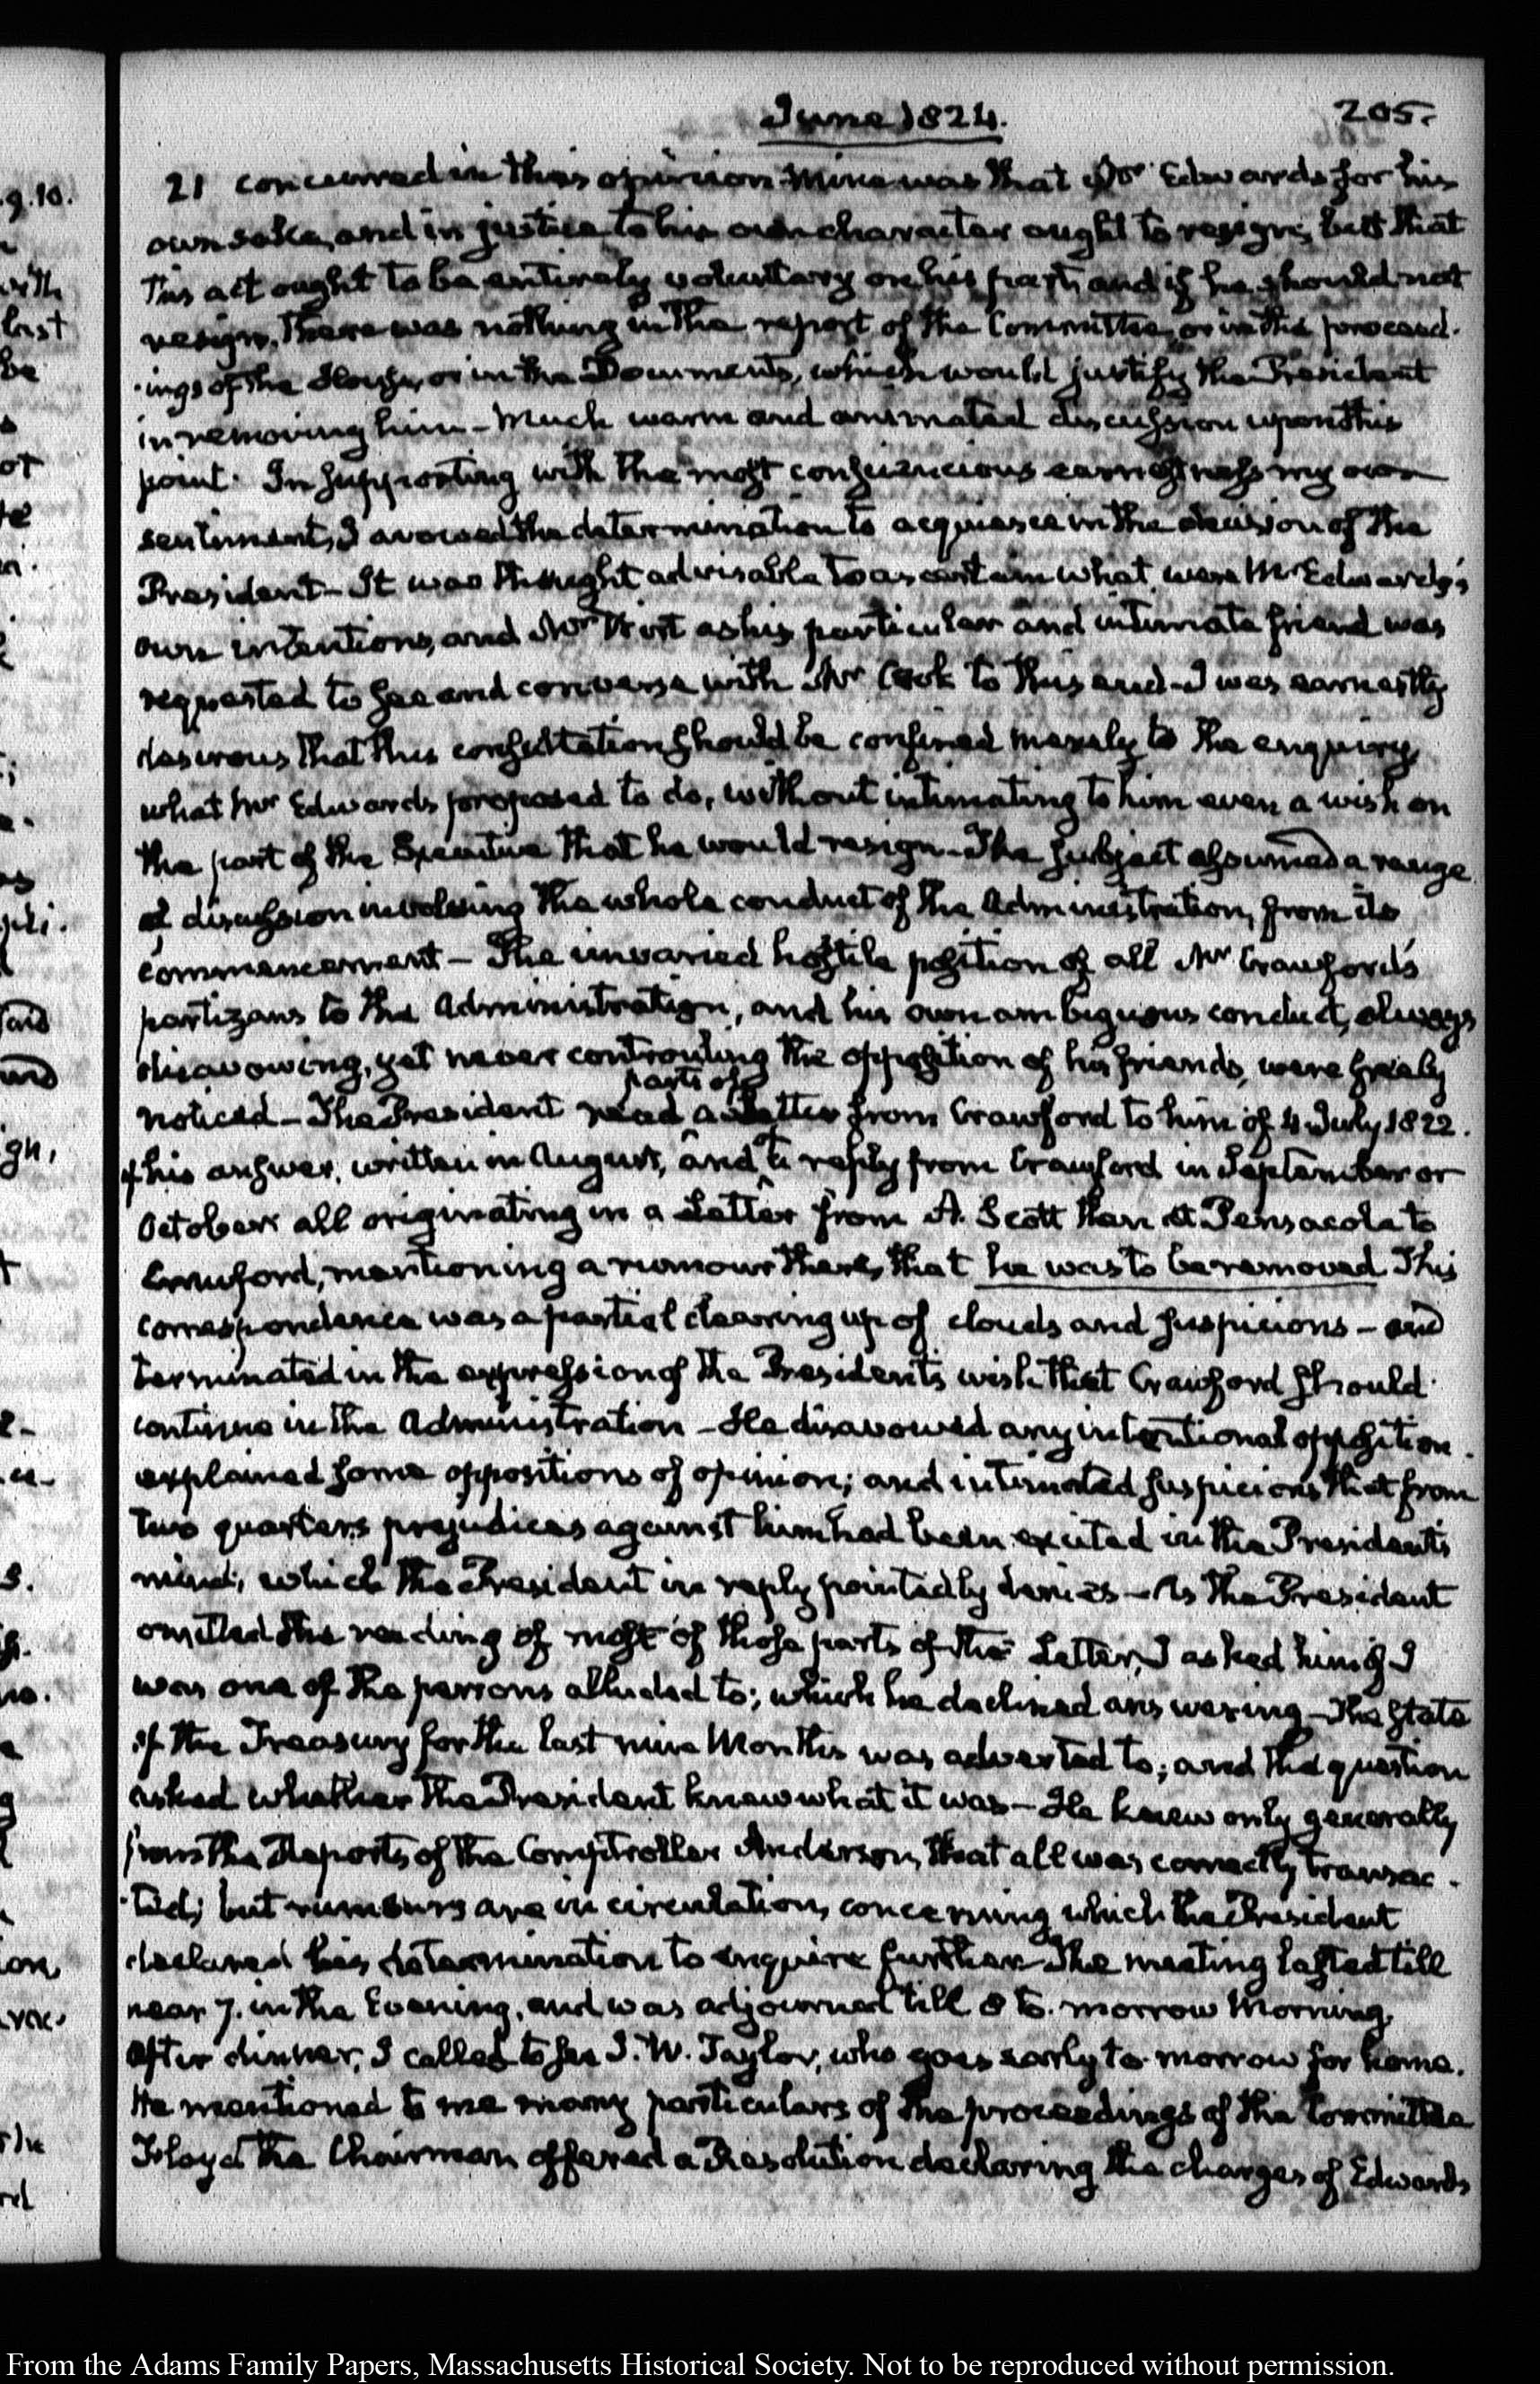 June 1824.
205.
21 concurred in this opinion. Mine was that Mr Edwards for his
own sake, and in justice to his own character ought to resign; but that
this act ought to be entirely voluntary on his part, and if he should not
resign, there was nothing in the report of the Committee, or in the proceed-
-ings of the House, or in the Documents, which would justify the President
in removing him — Much warm and animated discussion upon this
point. In supporting with the most conscientious earnestness my own
sentiment, I avowed the determination to acquiesce in the decision of the
President — It was thought advisable to ascertain what were Mr Edwards's
own intentions, and Mr Wirt as his particular and intimate friend was
requested to see and converse with Mr Cook to this end — I was earnestly
desirous that this consultation should be confined merely to the enquiry,
what Mr Edwards proposed to do, without intimating to him even a wish on
the part of the Executive that he would resign — The subject assumed a range
of discussion involving the whole conduct of the Administration, from its
commencement — The unvaried hostile position of all Mr Crawford's
partizans to the Administration, and his own ambiguous conduct, always
disavowing, yet never controuling the opposition of his friends, were freely
noticed — The President read parts of a Letter from Crawford to him of 4 July 1822.
& his answer, written in August, and a reply from Crawford in September or
October all originating in a Letter from A. Scott then at Pensacola to
Crawford, mentioning a rumour there, that he was to be removed This
correspondence was a partial clearing up of clouds and suspicions — and
terminated in the expression of the Presidents wish that Crawford should
continue in the Administration — He disavowed any intentional opposition.
explained some oppositions of opinion; and intimated suspicions that from
two quarters prejudices against him had been excited in the Presidents
mind; which the President in reply pointedly denies — As the President
omitted the reading of most of those parts of the Letter, I asked him if I
was one of the persons alluded to; which he declined answering — The state
of the Treasury for the last nine Months was adverted to; and the question
asked whether the President knew what it was — He knew only generally
from the Reports of the Comptroller Anderson, that all was correctly transac-
-ted; but rumours are in circulation, concerning which the President
declared his determination to enquire further The meeting lasted till
near 7. in the Evening, and was adjourned till 8 to-morrow Morning.
After dinner, I called to see J. W. Taylor, who goes early to-morrow for home.
He mentioned to me many particulars of the proceedings of the Committee
Floyd the Chairman offered a Resolution declaring the charges of Edwards
From the Adams Family Papers, Massachusetts Historical Society. Not to be reproduced without permission.